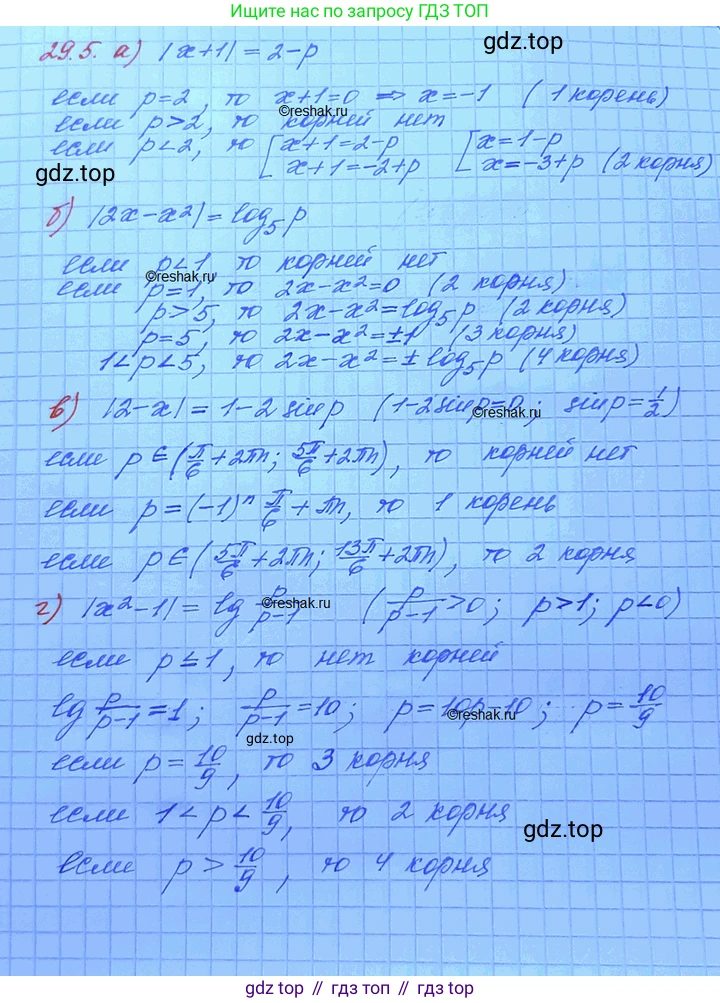 Ищите нас по запросу ГДЗ ТОП
29.5. а) |x+1| = 2-p
гдз top
если p=2, то x+1=0 => x=-1 (1 корень)
©reshak.ru
если p>2, то корней нет
если p<2, то [x+1=2-p [x=1-p
x+1=-2+p x=-3+p (2 корня)
гдз top
б) |2x-x²| = log₅p
если p<1, то корней нет
©reshak.ru
если p=1, то 2x-x²=0 (2 корня)
p>5, то 2x-x²=log₅p (2 корня)
p=5, то 2x-x²=±1 (3 корня)
1<p<5, то 2x-x²=± log₅p (4 корня)
в) |2-x| = 1-2 sin p (1-2sin p=0; sin p=1/2)
©reshak.ru
если p∈(π/6+2πn; 5π/6+2πn), то корней нет
если p=(-1)ⁿ π/6+πn, то 1 корень
если p∈(5π/6+2πn; 13π/6+2πn), то 2 корня
г) |x²-1| = lg p/p-1 (p/p-1>0; p>1; p<0)
©reshak.ru
если p≤1, то нет корней
lg p/p-1=1; p/p-1=10; p=10p-10; p=10/9
©reshak.ru
гдз top
если p=10/9, то 3 корня
если 1<p<10/9, то 2 корня
гдз top
если p>10/9, то 4 корня
gdz top // гдз топ // гдз top